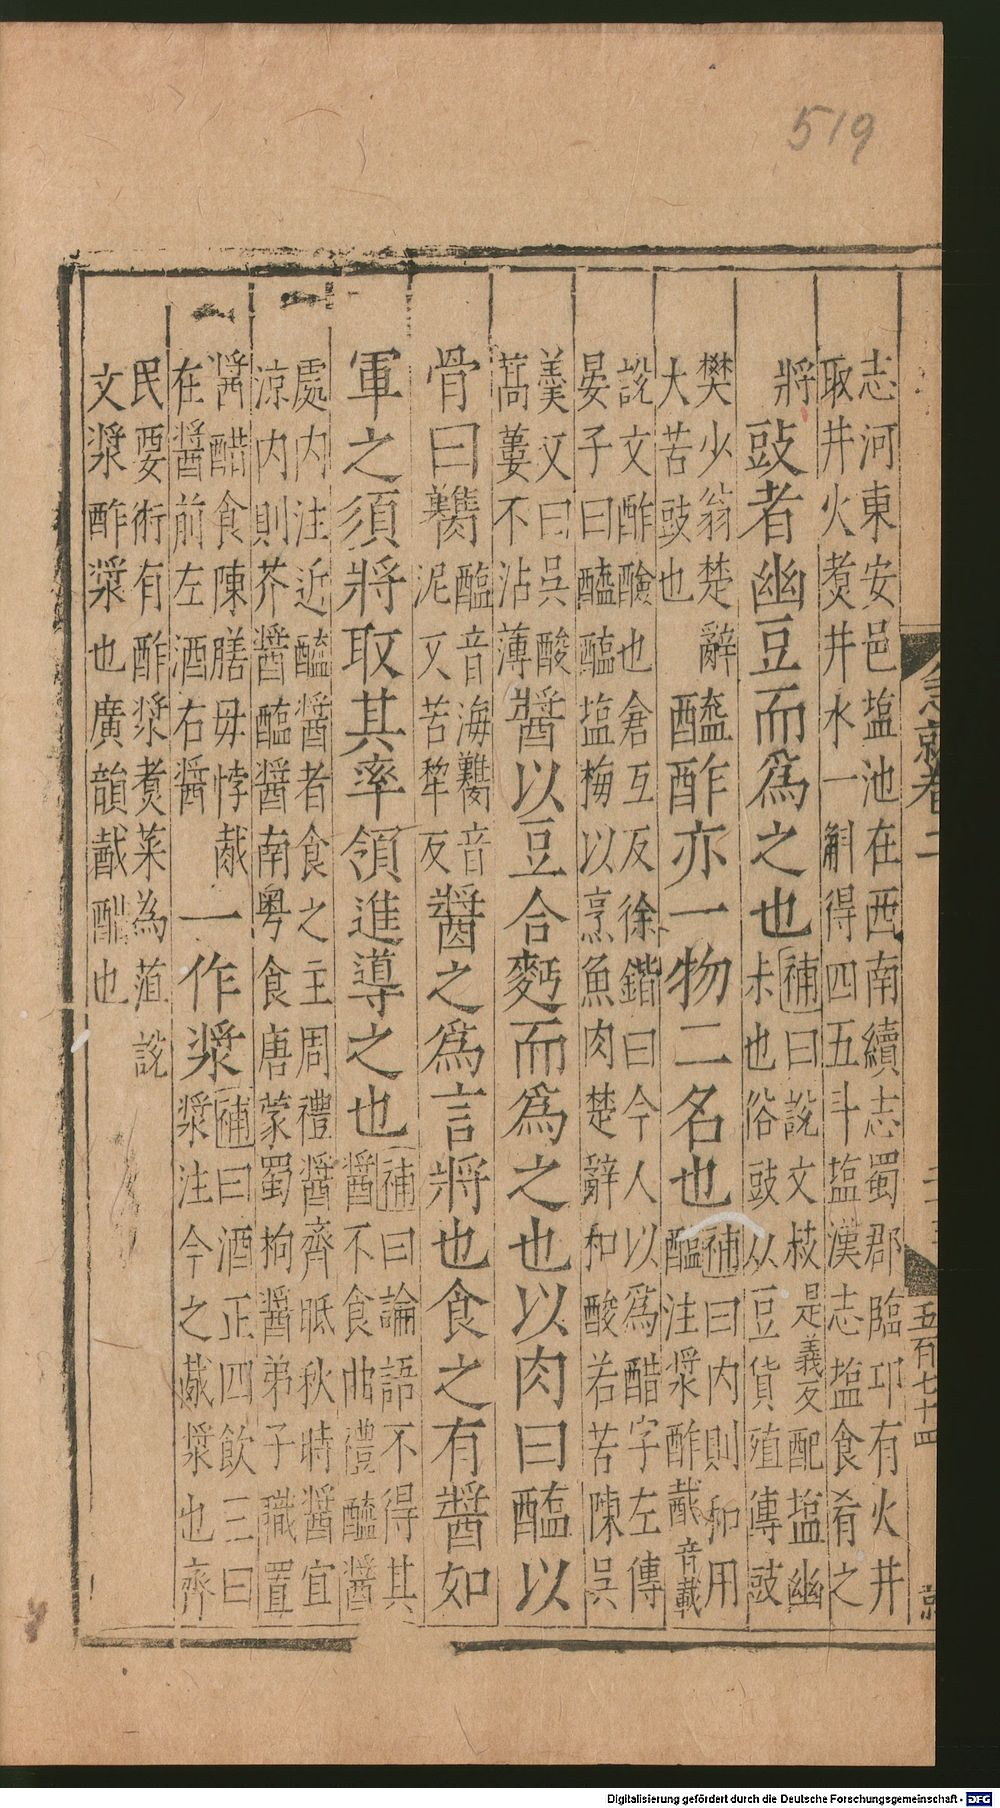 519
志河東安邑塩池在西南續志蜀郡臨邛有火井
取井火煑井水一斛得四五斗塩漢志塩食肴之
將
豉者幽豆而爲之也
補曰說文枝是義反配塩幽
尗也俗豉从豆貨殖傳豉
樊少翁楚辭
大苦豉也
醯酢亦一物二名也
補曰內則和用
醯注漿酢截音載
說文酢醶也倉互反徐鍇曰今人以爲醋字左傳
晏子曰醯醢塩梅以烹魚肉楚辭和酸若苦陳吳
羹又曰吳酸
蒿蔞不沾薄
醬以豆合麪而爲之也以肉曰醢以
骨曰臡
醢音海臡音
泥又苦犂反
醬之爲言將也食之有醬如
軍之須將取其率領進導之也
補曰論語不得其
醬不食曲禮醯醬
處内注近醯醬者食之主周禮醬齊眡秋時醬宜
涼内則芥醬醢醬南粵食唐蒙蜀枸醬弟子職置
醬醋食陳膳毋悖胾
在醬前左酒右醬
一作漿
補曰酒正四飲三曰
漿注今之截漿也齊
民要術有酢漿煑菜為菹說
文漿酢漿也廣韻截酢也
急就卷二
五百七十四